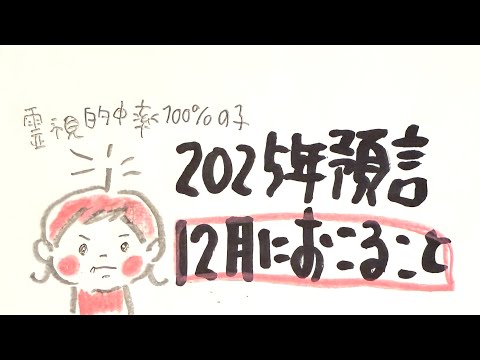 霊視的中率100%の子
2025年預言
12月におこること